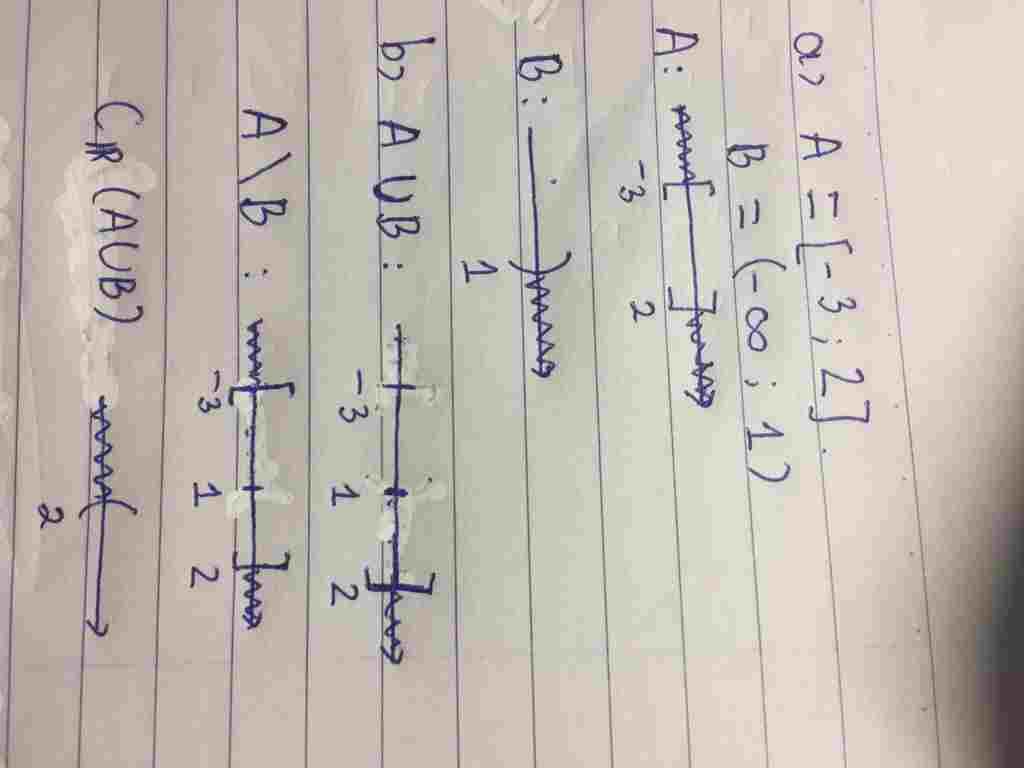 a) A = [-3; 2].
B = (-∞; 1)
A:
-3 2
B:
1
b) A ∪ B:
-3 1 2
A \ B:
-3 1 2
Cℝ (A∪B)
2